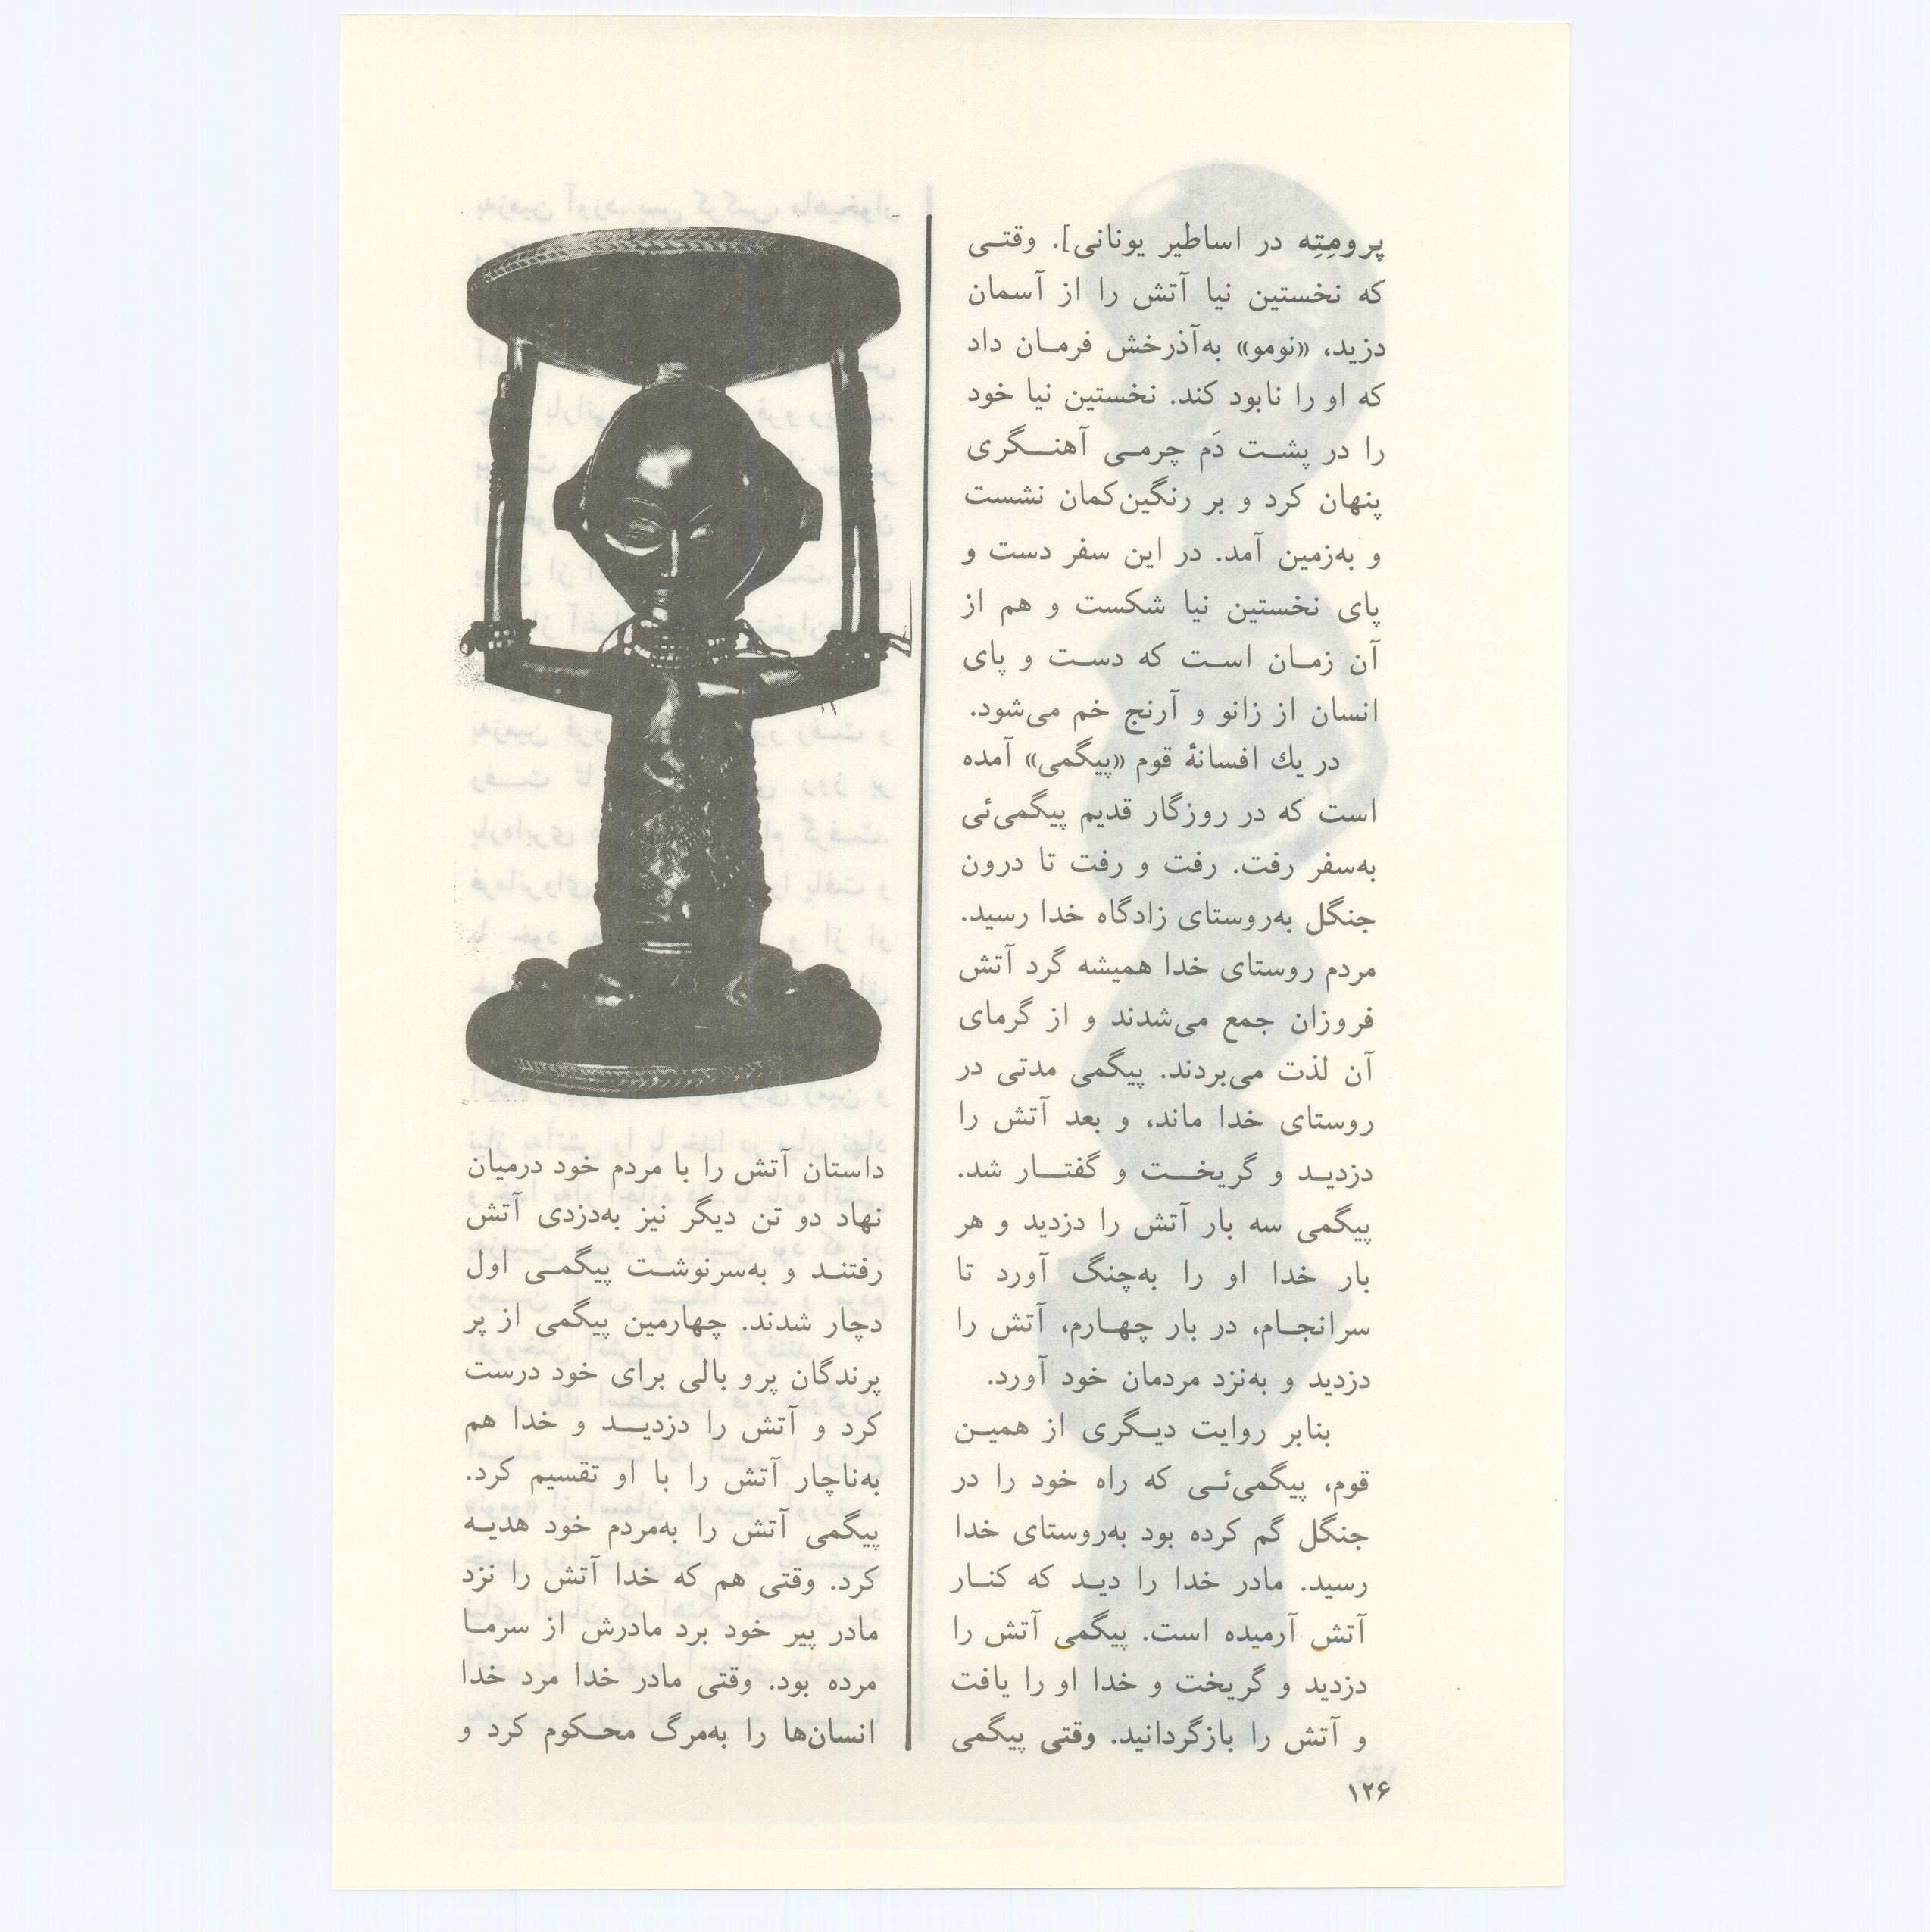 پرومِتِه در اساطیر یونانی]. وقتـی
که نخستین نیا آتش را از آسمان
دزید، «نومو» به‌آذرخش فرمـان داد
که او را نابود کند. نخستین نیا خود
را در پشـت دَم چرمـی آهنـــگری
پنهان کرد و بر رنگین‌کمان نشست
و به‌زمین آمد. در این سفر دست و
پای نخستین نیا شکست و هم از
آن زمـان اسـت که دسـت و پای
انسان از زانو و آرنج خم می‌شود.
در یك افسانهٔ قوم «پیگمی» آمده
است که در روزگار قدیم پیگمی‌ئی
به‌سفر رفت. رفت و رفت تا درون
جنگل به‌روستای زادگاه خدا رسید.
مردم روستای خدا همیشه گرد آتش
فروزان جمع می‌شدند و از گرمای
آن لذت می‌بردند. پیگمی مدتی در
روستای خدا ماند، و بعد آتش را
دزدیـد و گریخـــت و گفتـــار شد.
پیگمی سه بار آتش را دزدید و هر
بار خدا او را به‌چنگ آورد تا
سرانجـام، در بار چهـارم، آتش را
دزدید و به‌نزد مردمان خود آورد.
بنابر روایت دیـگری از همیـن
قوم، پیگمی‌ئـی که راه خود را در
جنگل گم کرده بود به‌روستای خدا
رسید. مادر خدا را دیـد که کنـار
آتش آرمیده است. پیگمی آتش را
دزدید و گریخت و خدا او را یافت
و آتش را بازگردانید. وقتی پیگمی
داستان آتش را با مردم خود درمیان
نهاد دو تن دیگر نیز به‌دزدی آتش
رفتنـد و به‌سرنوشـت پیگمـی اول
دچار شدند. چهارمین پیگمی از پر
پرندگان پرو بالی برای خود درست
کرد و آتش را دزدیـــد و خدا هم
به‌ناچار آتش را با او تقسیم کرد.
پیگمی آتش را به‌مردم خود هدیـه
کرد. وقتی هم که خدا آتش را نزد
مادر پیر خود برد مادرش از سرمـا
مرده بود. وقتی مادر خدا مرد خدا
انسان‌ها را به‌مرگ محـکوم کرد و
۱۲۶